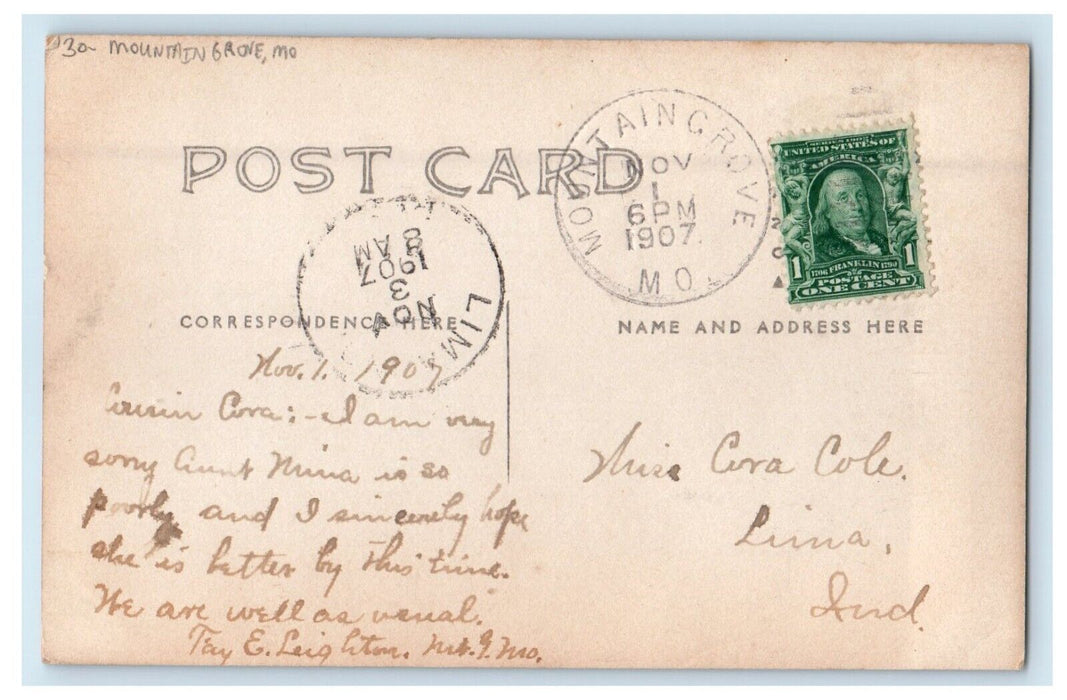 30- MOUNTAIN GROVE, MO
POST CARD
MOUNTAIN GROVE
NOV
1
6 PM
1907.
MO.
SERIES 1902
UNITED STATES OF
AMERICA
1706 FRANKLIN 1790
POSTAGE
1 ONE CENT 1
LIMA
NOV
3
1907
8 AM
CORRESPONDENCE HERE
NAME AND ADDRESS HERE
Nov. 1. 1907
Cousin Cora:- I am very
sorry Aunt Mina is so
poorly and I sincerely hope
she is better by this time.
We are well as usual.
Fay E. Leighton. Mt. G. Mo.
Miss Cora Cole.
Lima,
Ind.